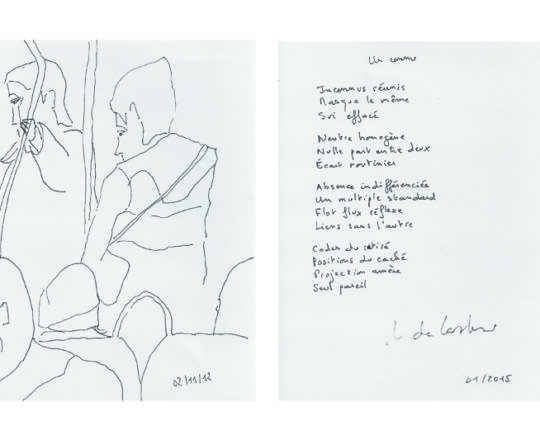 02/11/12
Un connu
Inconnus réunis
Masque le même
Soi effacé
Neutre homogène
Nulle part entre deux
Écart routinier
Absence indifférenciée
Un multiple standard
Flot flux réflexe
Liens sans l'autre
Codes du retiré
Positions du caché
Projection amère
Seul pareil
de
01/2015